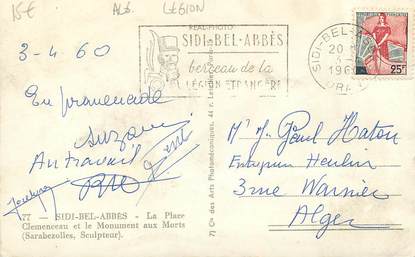 15€ ALG. LEGION
REAL-PHOTO
SIDI-BEL-ABBÈS
berceau de la
LÉGION ETRANGÈRE
SIDI-BEL-AB
20
196
ORAN
25F
3-4 60
En promenade
Suzanne
Au travail
M. Mr Paul Haton
Entreprise
3 rue Warnier
Alger
77 — SIDI-BEL-ABBÈS - La Place
Clemenceau et le Monument aux Morts
(Sarabezolles, Sculpteur).
7) Cie des Arts Photomécaniques, 44 r. Letellier